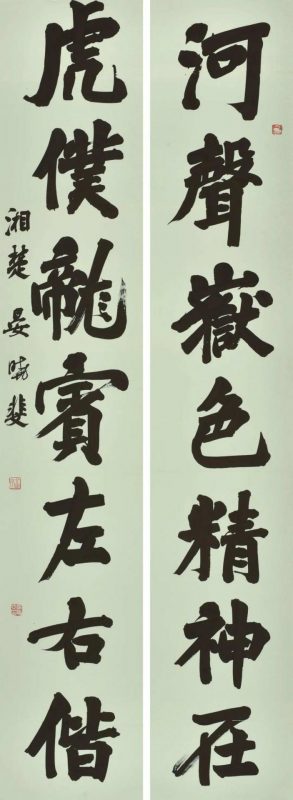 河聲嶽色精神在
虎僕龍賓左右偕
湘楚晏晓斐